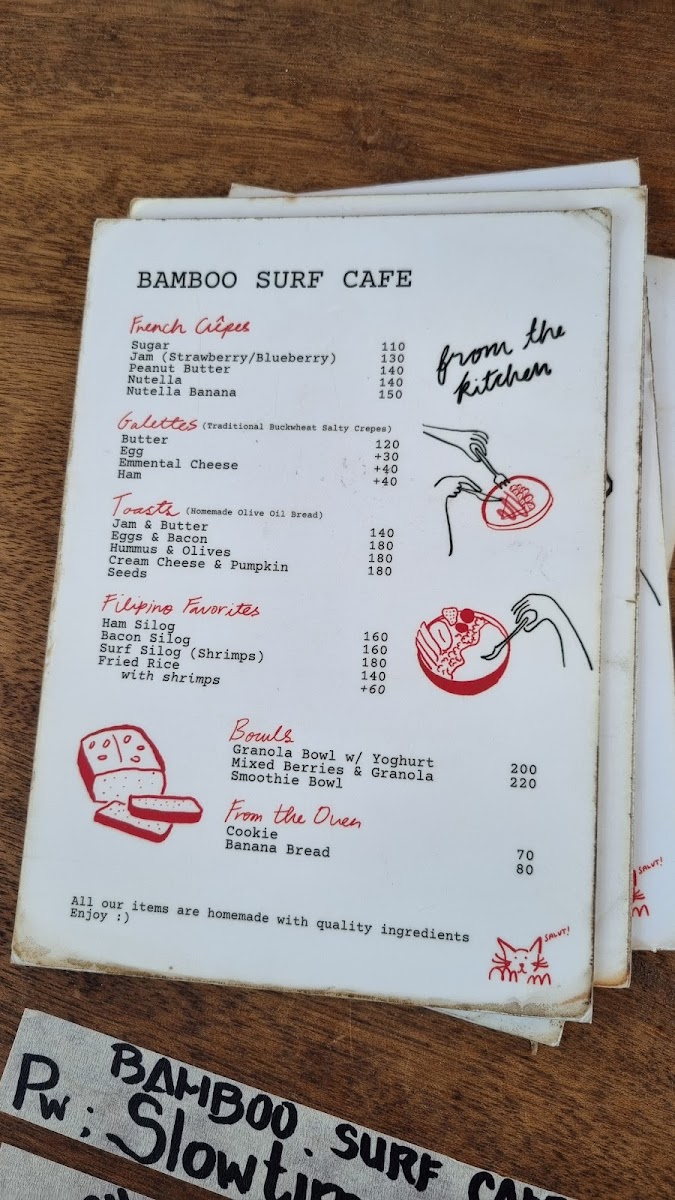 BAMBOO SURF CAFE
from the
kitchen
French Crêpes
Sugar 110
Jam (Strawberry/Blueberry) 130
Peanut Butter 140
Nutella 140
Nutella Banana 150
Galettes (Traditional Buckwheat Salty Crepes)
Butter 120
Egg +30
Emmental Cheese +40
Ham +40
Toasts (Homemade Olive Oil Bread)
Jam & Butter 140
Eggs & Bacon 180
Hummus & Olives 180
Cream Cheese & Pumpkin 180
Seeds
Filipino Favorites
Ham Silog 160
Bacon Silog 160
Surf Silog (Shrimps) 180
Fried Rice 140
with shrimps +60
Bowls
Granola Bowl w/ Yoghurt 200
Mixed Berries & Granola 220
Smoothie Bowl
From the Oven
Cookie 70
Banana Bread 80
All our items are homemade with quality ingredients
Enjoy :)
SALUT!
SALUT!
BAMBOO SURF
Pw: